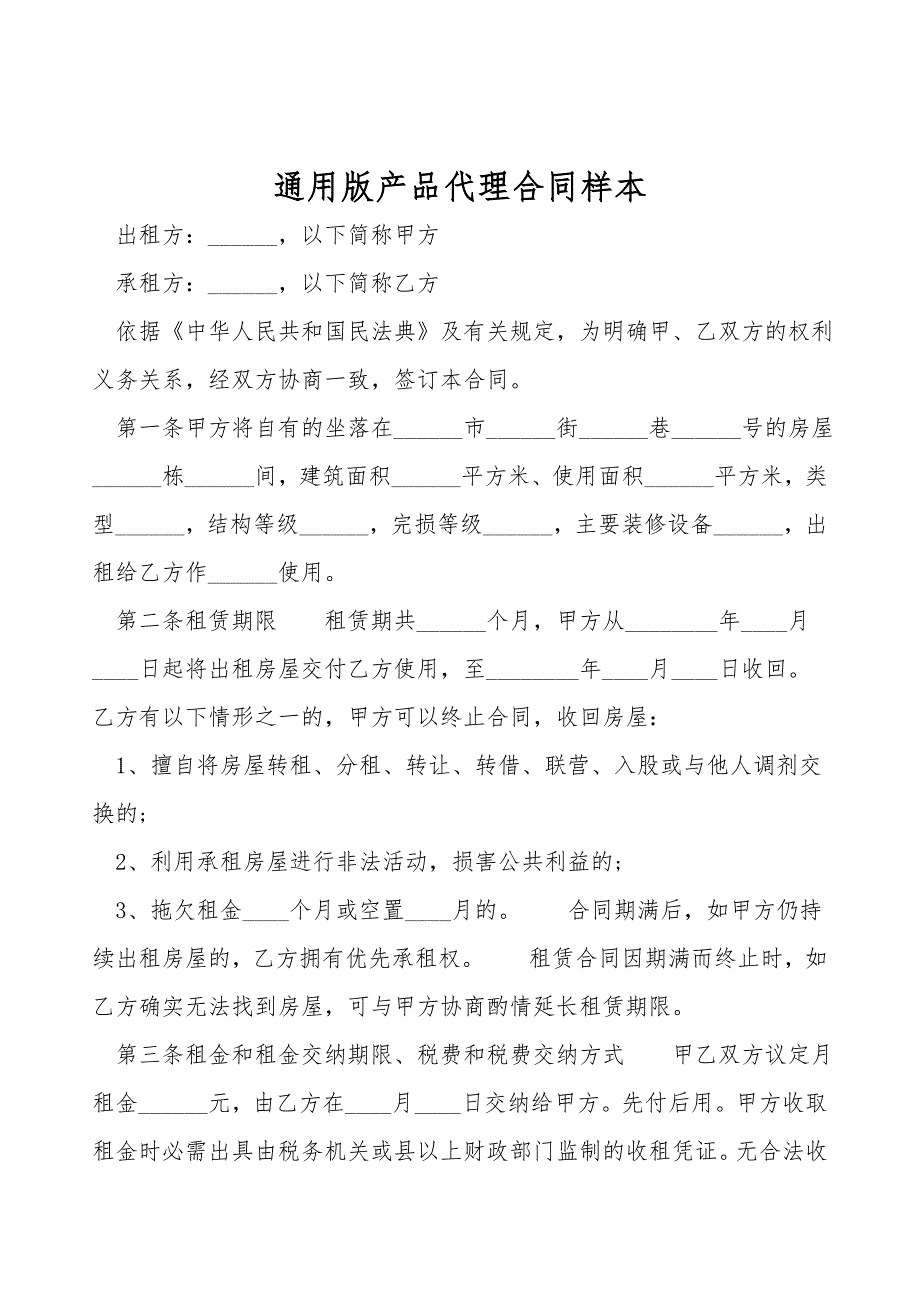 通用版产品代理合同样本
出租方：______，以下简称甲方
承租方：______，以下简称乙方
依据《中华人民共和国民法典》及有关规定，为明确甲、乙双方的权利
义务关系，经双方协商一致，签订本合同。
第一条甲方将自有的坐落在______市______街______巷______号的房屋
______栋______间，建筑面积______平方米、使用面积______平方米，类
型______，结构等级______，完损等级______，主要装修设备______，出
租给乙方作______使用。
第二条租赁期限　　租赁期共______个月，甲方从________年____月
____日起将出租房屋交付乙方使用，至________年____月____日收回。
乙方有以下情形之一的，甲方可以终止合同，收回房屋：
1、擅自将房屋转租、分租、转让、转借、联营、入股或与他人调剂交
换的;
2、利用承租房屋进行非法活动，损害公共利益的;
3、拖欠租金____个月或空置____月的。　　合同期满后，如甲方仍持
续出租房屋的，乙方拥有优先承租权。　　租赁合同因期满而终止时，如
乙方确实无法找到房屋，可与甲方协商酌情延长租赁期限。
第三条租金和租金交纳期限、税费和税费交纳方式　　甲乙双方议定月
租金______元，由乙方在____月____日交纳给甲方。先付后用。甲方收取
租金时必需出具由税务机关或县以上财政部门监制的收租凭证。无合法收